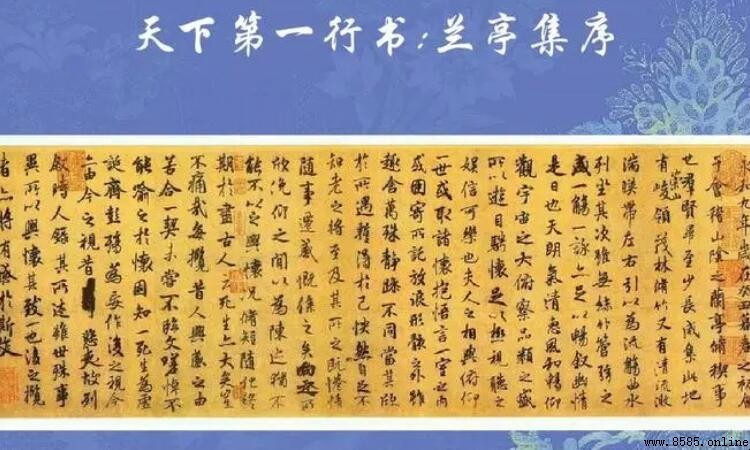 天下第一行书:兰亭集序
于會稽山陰之蘭亭脩禊事
也羣賢畢至少長咸集此地
有崇山峻領茂林脩竹又有清流激
湍暎帶左右引以為流觴曲水
列坐其次雖無絲竹管弦之
盛一觴一詠亦足以暢敘幽情
是日也天朗氣清惠風和暢仰
觀宇宙之大俯察品類之盛
所以遊目騁懷足以極視聽之
娛信可樂也夫人之相與俯仰
一世或取諸懷抱悟言一室之內
或因寄所託放浪形骸之外雖
趣舍萬殊靜躁不同當其欣
於所遇暫得於己怏然自足不
知老之將至及其所之既惓情
隨事遷感慨係之矣向之所
欣俛仰之間以為陳迹猶不
能不以之興懷況脩短隨化終
期於盡古人云死生亦大矣豈
不痛哉每攬昔人興感之由
若合一契未嘗不臨文嗟悼不
能喻之於懷固知一死生為虛
誕齊彭殤為妄作後之視今
亦由今之視昔悲夫故列
敘時人錄其所述雖世殊事
異所以興懷其致一也後之攬
者亦將有感於斯文
www.8585.online